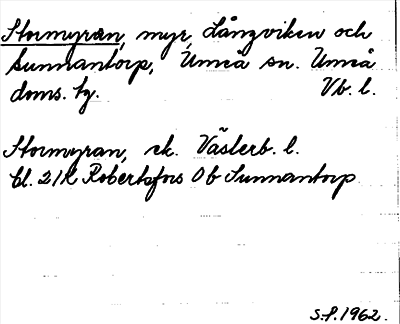 Stormyran, myr, Långviken och
Sunnantorp, Umeå sn. Umeå
doms. tg. Vb. l.
Stormyran, ek. Västerb. l.
bl. 21K Robertsfors Ob Sunnantorp
S.f. 1962.